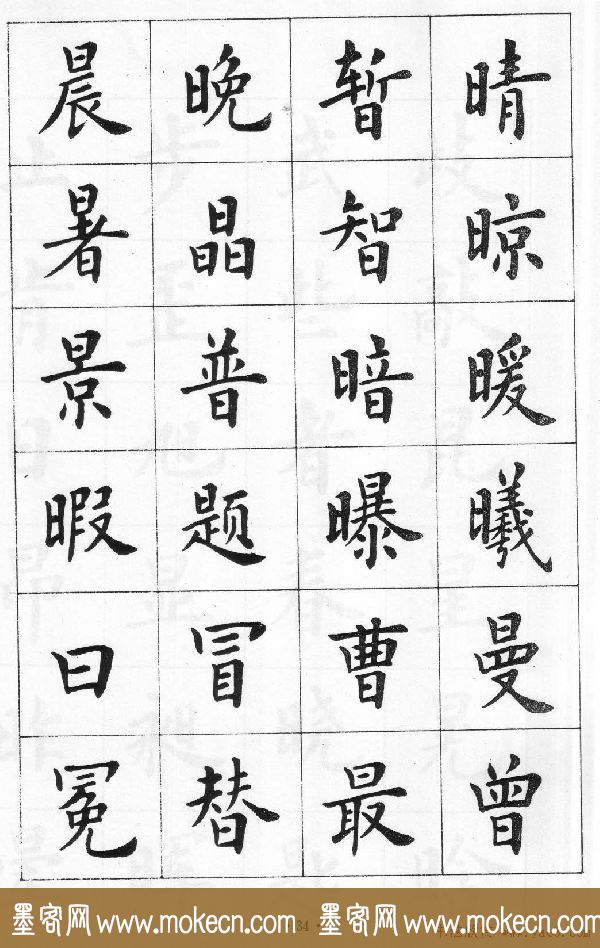 晨 晚 暂 晴
暑 晶 智 晾
景 普 暗 暖
暇 题 曝 曦
曰 冒 曹 曼
冕 替 最 曾
墨客网 www.mokecn.com 墨客网 www.mokecn.com